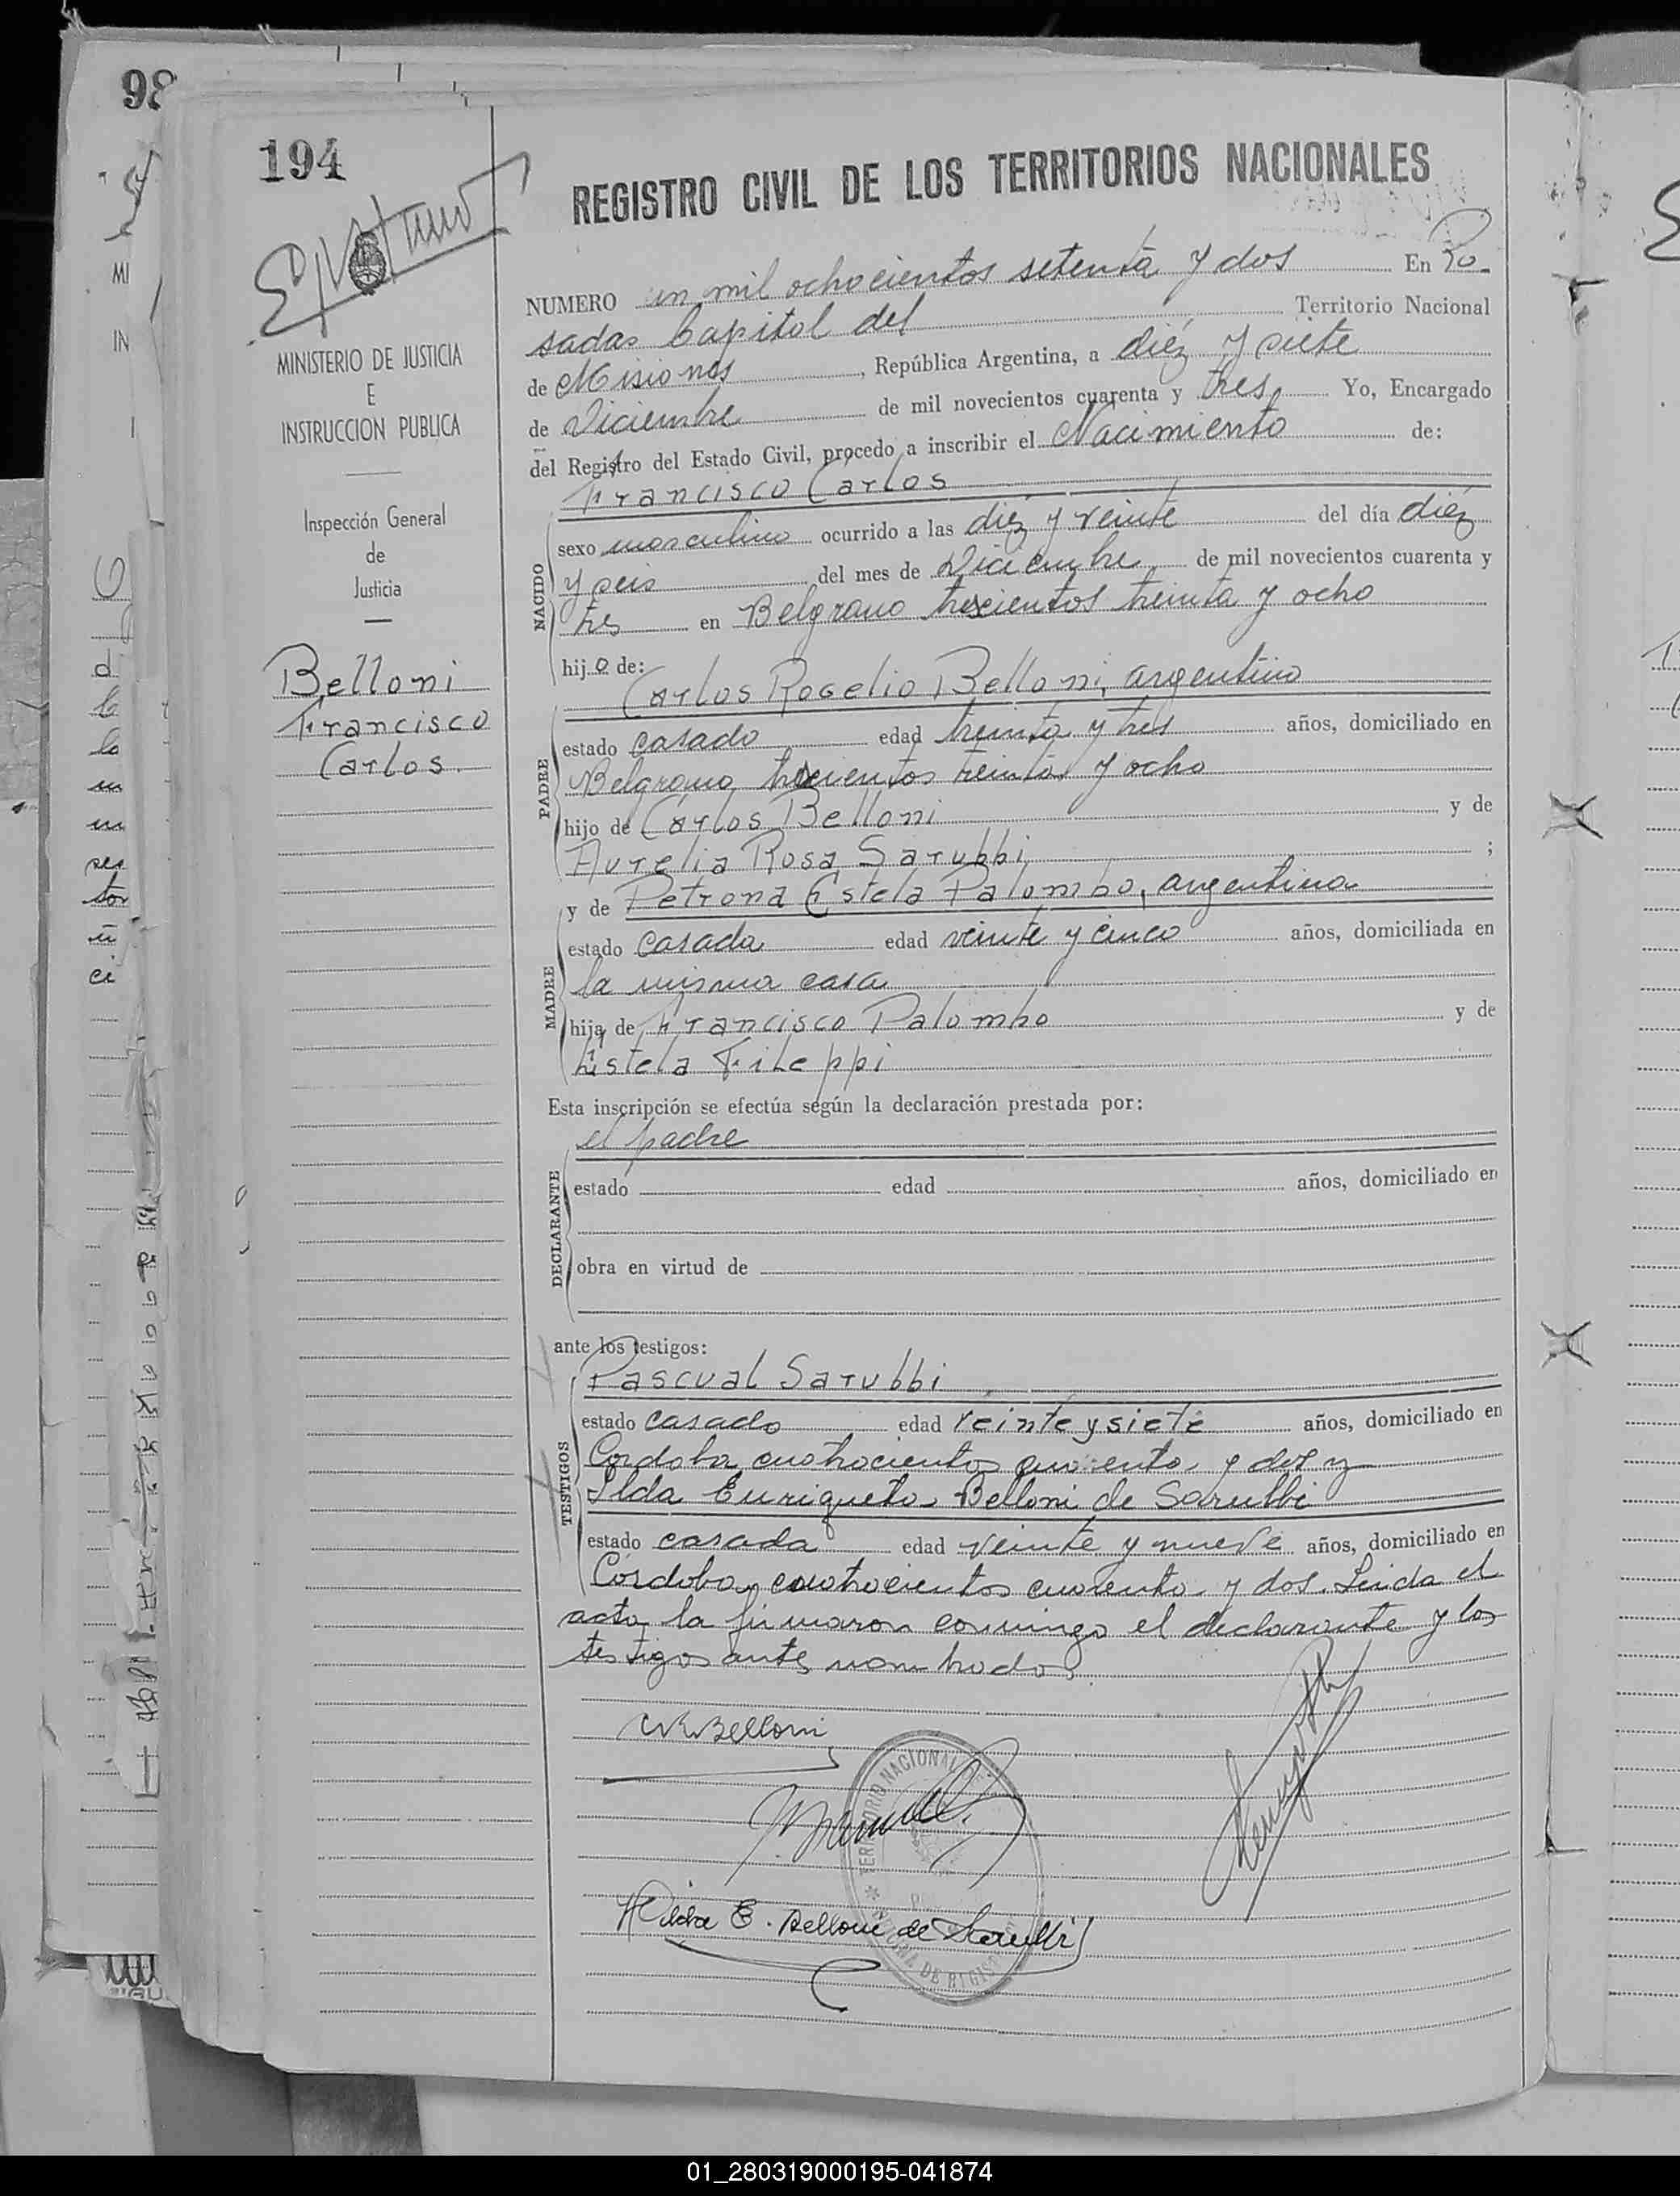 98
194
REGISTRO CIVIL DE LOS TERRITORIOS NACIONALES
NUMERO un mil ochocientos setenta y dos En Po
sadas Capital del Territorio Nacional
de Misiones, República Argentina, a diéz y siete
de Diciembre de mil novecientos cuarenta y tres Yo, Encargado
del Registro del Estado Civil, procedo a inscribir el Nacimiento de:
Francisco Carlos
NACIDO
sexo masculino ocurrido a las diéz y veinte del día diéz
y seis del mes de Diciembre de mil novecientos cuarenta y
tres en Belgrano trescientos treinta y ocho
hijo de:
Carlos Rogelio Belloni, argentino
PADRE
estado casado edad treinta y tres años, domiciliado en
Belgrano trescientos treinta y ocho
hijo de Carlos Belloni y de
Aurelia Rosa Sarubbi ;
y de Petrona Estela Palombo, argentina
MADRE
estado casada edad veinte y cinco años, domiciliada en
la misma casa
hija de Francisco Palombo y de
Estela Fileppi
Esta inscripción se efectúa según la declaración prestada por:
el padre
DECLARANTE
estado edad años, domiciliado en
obra en virtud de
ante los testigos:
Pascual Sarubbi
TESTIGOS
estado casado edad veinte y siete años, domiciliado en
Cordoba cuatrocientos cuarenta y dos y
Ilda Enriqueta Belloni de Sarubbi
estado casada edad veinte y nueve años, domiciliado en
Córdoba cuatrocientos cuarenta y dos. Leida el
acta la firmaron conmigo el declarante y los
testigos antes nombrados.
Belloni
Hilda E. Belloni de Sarubbi
TERRITORIO NACIONAL DE
MINISTERIO DE JUSTICIA
E
INSTRUCCION PUBLICA
Inspección General
de
Justicia
Belloni
Francisco
Carlos.
MI
IN
01_280319000195-041874